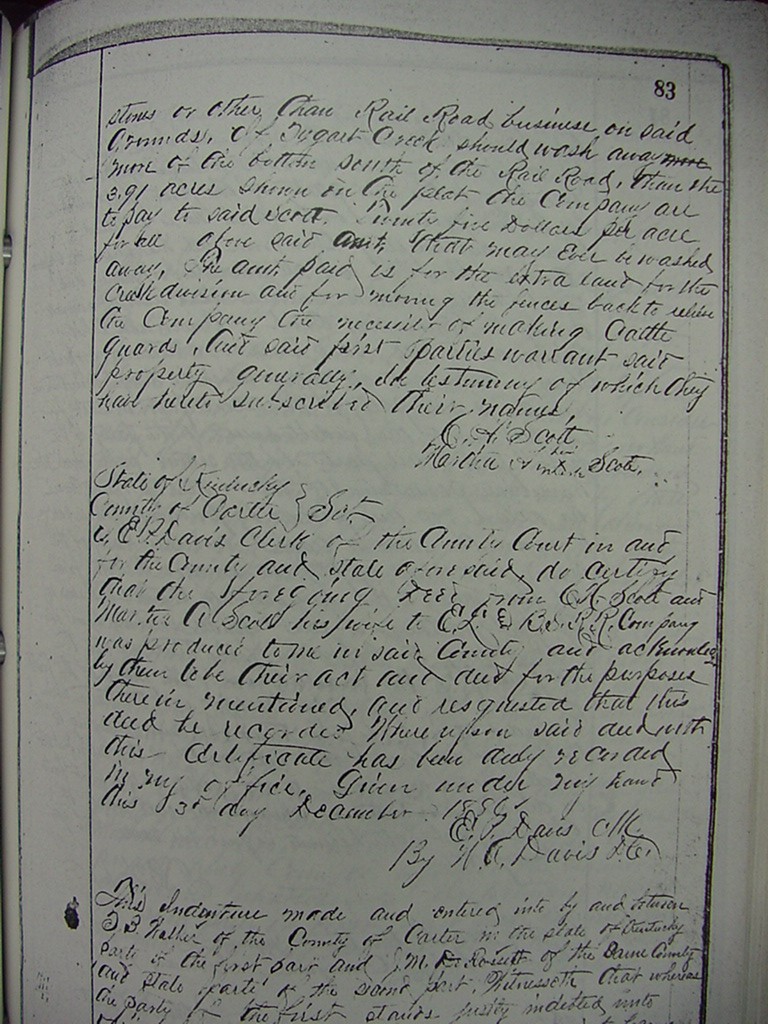 83
stores or other than Rail Road business on said
Grounds, if Tygart Creek should wash away more
more of the bottom south of the Rail Road, than the
3.91 acres shown on the plat the Company are
to pay to said Scott Twenty five Dollars per acre
for all above said amt, that may Ever be washed
away, The amt paid is for the extra land for the
Creek division and for moving the fences back to relieve
the Company the necessity of making Cattle
guards, And said first parties warrant said
property generally, in testimony of which they
have hereto subscribed their names
C. A. Scott
Martha A her mark Scott
State of Kentucky
County of Carter } Sct
I, E. P. Davis Clerk of the County Court in and
for the County and state aforesaid, do certify
that the foregoing Deed from C A Scott and
Martha A Scott his wife to E. L. & B. S. R.R. Company
was produced to me in said County and acknowledged
by them to be their act and deed for the purposes
therein mentioned, and requested that this
deed be recorded Whereupon said deed with
this certificate has been duly recorded
in my office. Given under my hand
this 3d day December
E. P. Davis Clk.
By Davis D.C.
This Indenture made and entered into by and between
Walker of the County of Carter in the state of Kentucky
party of the first part and J. M. De Rossett of the Same County
and state party of the second part Witnesseth that whereas
the party of the first stands justly indebted unto